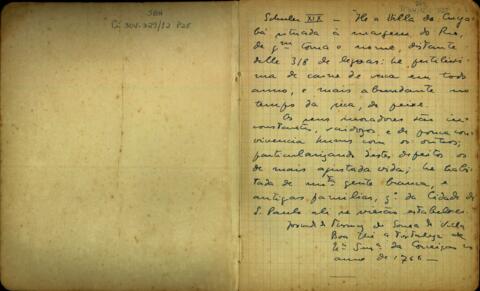 SBH
Schuler XIX – He a Villa do Cuya-
bá situada à margem do Rio,
de q.m toma o nome, distante
delle 3/8 de legoas: he fertelissi-
ma de carne de vaca em todo
anno, e mais abundante no
tempo da seca, de peixe.
Os seus moradores são in-
constantes, vaidozos, e de pouca con-
vivencia huns com os outros;
particularizando destes defeitos os
de mais ajustada vida; he habi-
tada de m.ta gente branca, e
antigas familias, q. da Cidade de
S. Paulo ali se vierão estabelecer.
de Souza de Villa
Bom the a Fortaleza de
N. Snr.a da Conceição no
anno de 1766 –